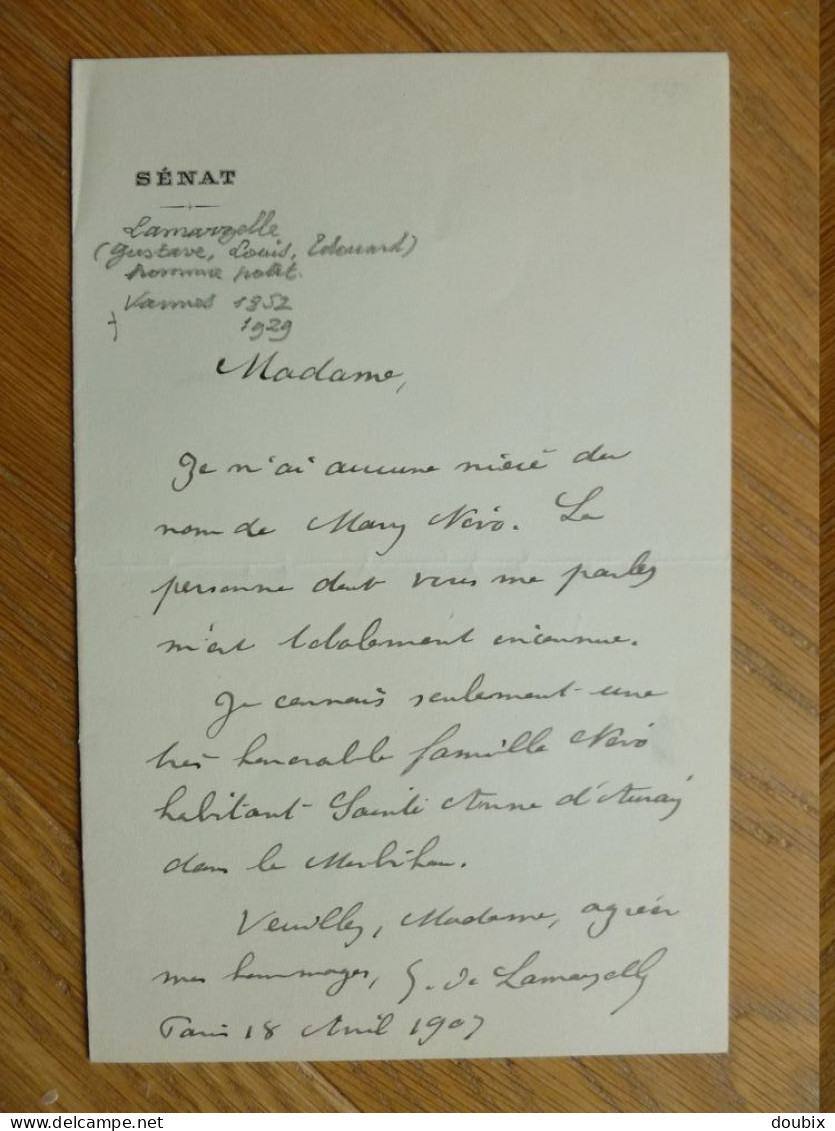 SÉNAT
Lamarzelle
(Gustave, Louis, Edouard)
homme polit.
Vannes 1852
† 1929
Madame,
Je n'ai aucune nièce du
nom de Mary Névo. La
personne dont vous me parlez
m'est totalement inconnue.
Je connais seulement une
très honorable famille Névo
habitant Sainte Anne d'Auray
dans le Morbihan.
Veuillez, Madame, agréer
mes hommages, G. de Lamarzelle
Paris 18 Avril 1907
doubix